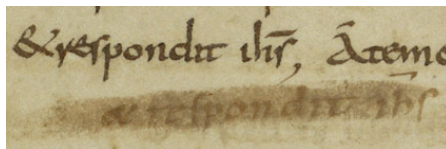 &respondit ih̅s, A̅temo
& respondit ih̅s